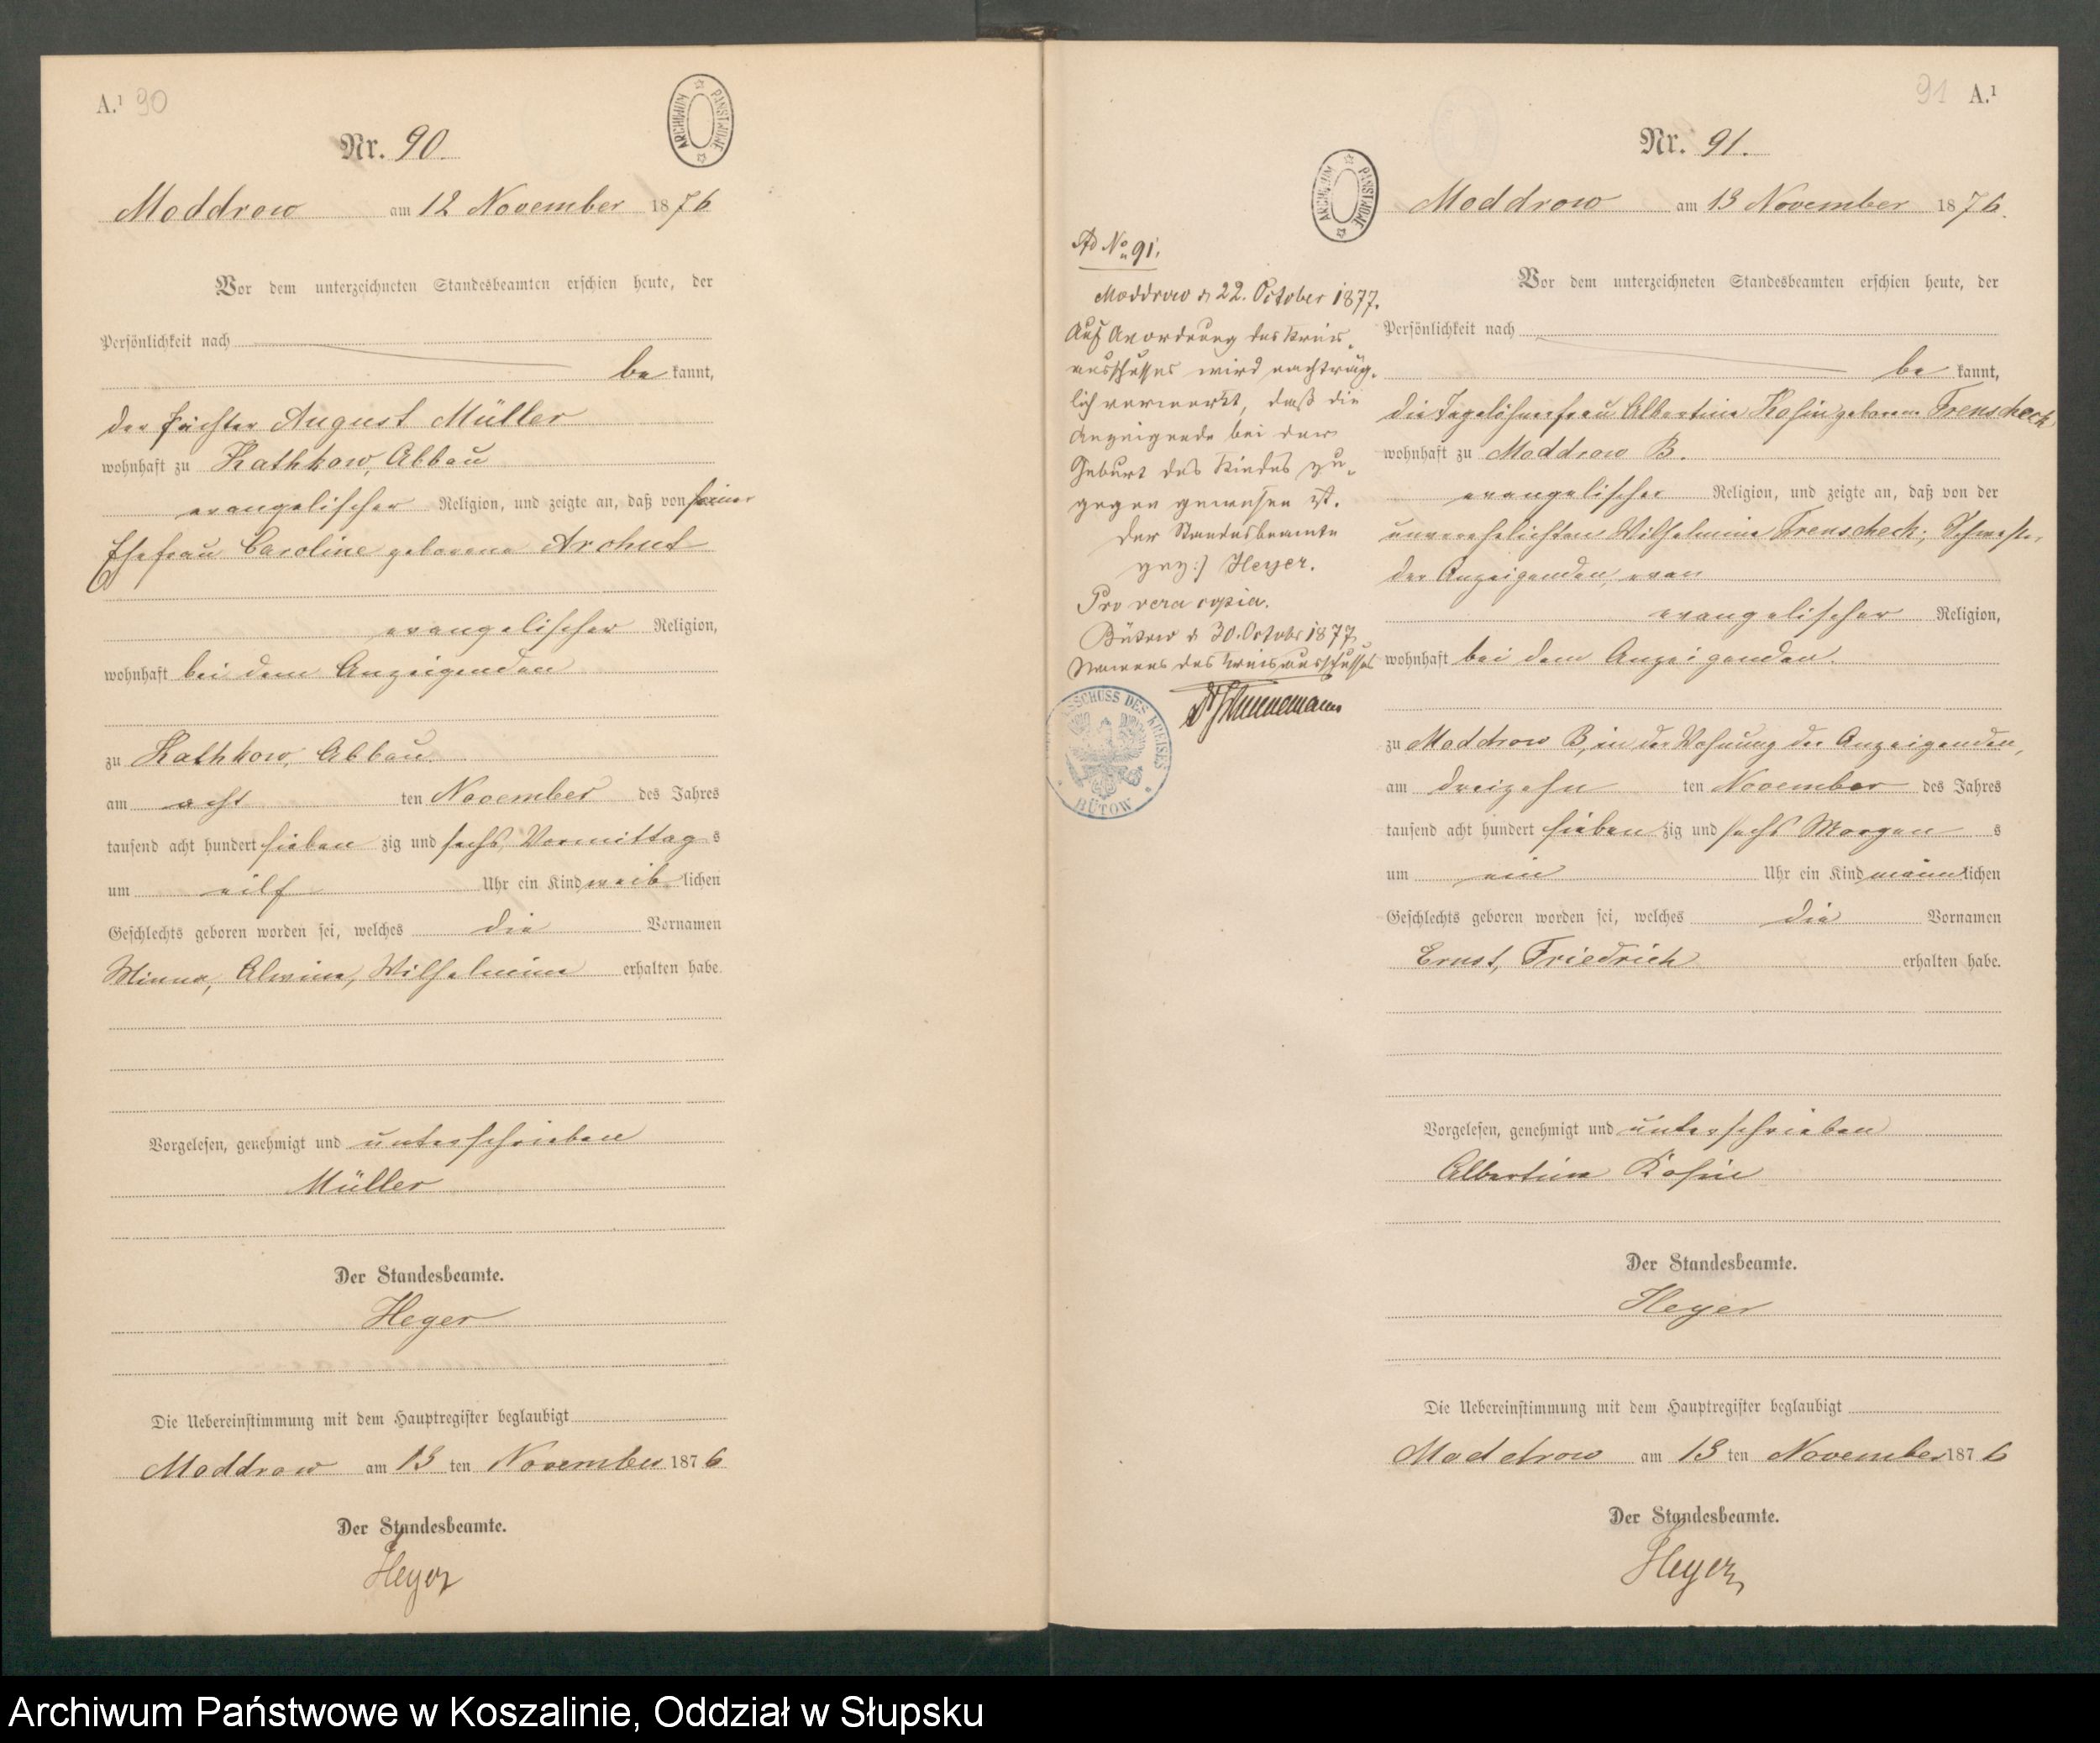 A.¹ 90
ARCHIWUM PAŃSTWOWE
Nr. 90.
Moddrow am 12 November 1876
Vor dem unterzeichneten Standesbeamten erschien heute, der
Persönlichkeit nach
be kannt,
der Pächter August Müller
wohnhaft zu Kathkow, Abbau
evangelischer Religion, und zeigte an, daß von seiner
Ehefrau Caroline geborene
evangelischer Religion,
wohnhaft bei dem Anzeigenden
zu Kathkow, Abbau
am acht ten November des Jahres
tausend acht hundert sieben zig und sechs, Vormittag s
um eilf Uhr ein Kind weib lichen
Geschlechts geboren worden sei, welches die Vornamen
Minna, Alwine, Wilhelmine erhalten habe.
Vorgelesen, genehmigt und unterschrieben
Müller
Der Standesbeamte.
Heyer
Die Uebereinstimmung mit dem Hauptregister beglaubigt
Moddrow am 13 ten November 1876
Der Standesbeamte.
Heyer
91 A.¹
ARCHIWUM PAŃSTWOWE
Nr. 91.
Moddrow am 13 November 1876.
Vor dem unterzeichneten Standesbeamten erschien heute, der
Persönlichkeit nach
be kannt,
die Tagelöhnerfrau Albertine Kosin geborene Trenscheck,
wohnhaft zu Moddrow B.
evangelischer Religion, und zeigte an, daß von der
unverehelichten Wilhelmine Trenscheck, Schwester
der Anzeigenden,
evangelischer Religion,
wohnhaft bei dem Anzeigenden.
zu Moddrow B, in der Wohnung der Anzeigenden,
am dreizehn ten November des Jahres
tausend acht hundert sieben zig und sechs Morgen s
um ein Uhr ein Kind männ lichen
Geschlechts geboren worden sei, welches die Vornamen
Ernst, Friedrich erhalten habe.
Vorgelesen, genehmigt und unterschrieben
Albertine Kosin
Der Standesbeamte.
Heyer
Die Uebereinstimmung mit dem Hauptregister beglaubigt
Moddrow am 13 ten November 1876
Der Standesbeamte.
Heyer
Ad No 91.
Moddrow d 22. October 1877.
Auf Anordnung des Kreis-
ausschusses wird nachträg-
lich vermerkt, daß die
Anzeigende bei der
Geburt des Kindes zu-
gegen gewesen ist.
Der Standesbeamte
gez:) Heyer.
Pro vera copia.
Bütow d 30. October 1877
Namens des Kreisausschusses
AUSSCHUSS DES KREISES
BÜTOW
Archiwum Państwowe w Koszalinie, Oddział w Słupsku